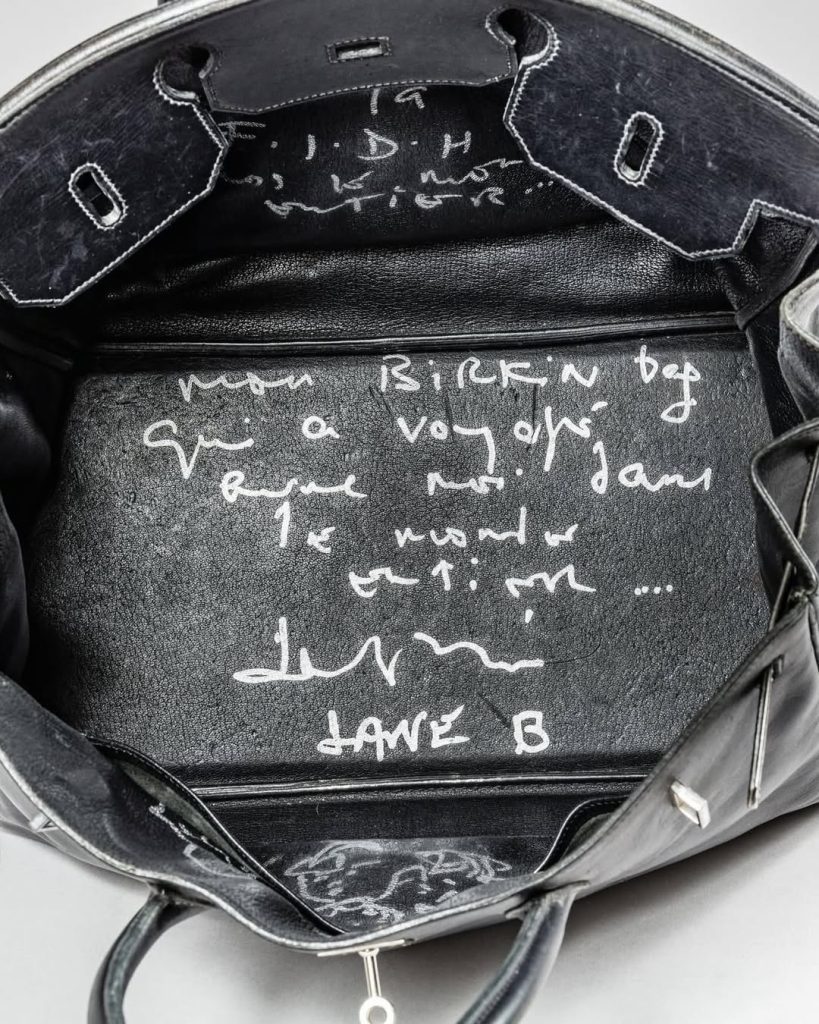 F.I.D.H
entier ...
mon BiRKiN bag
qui a voyagé
avec moi dans
le monde
entier ...
JANE B